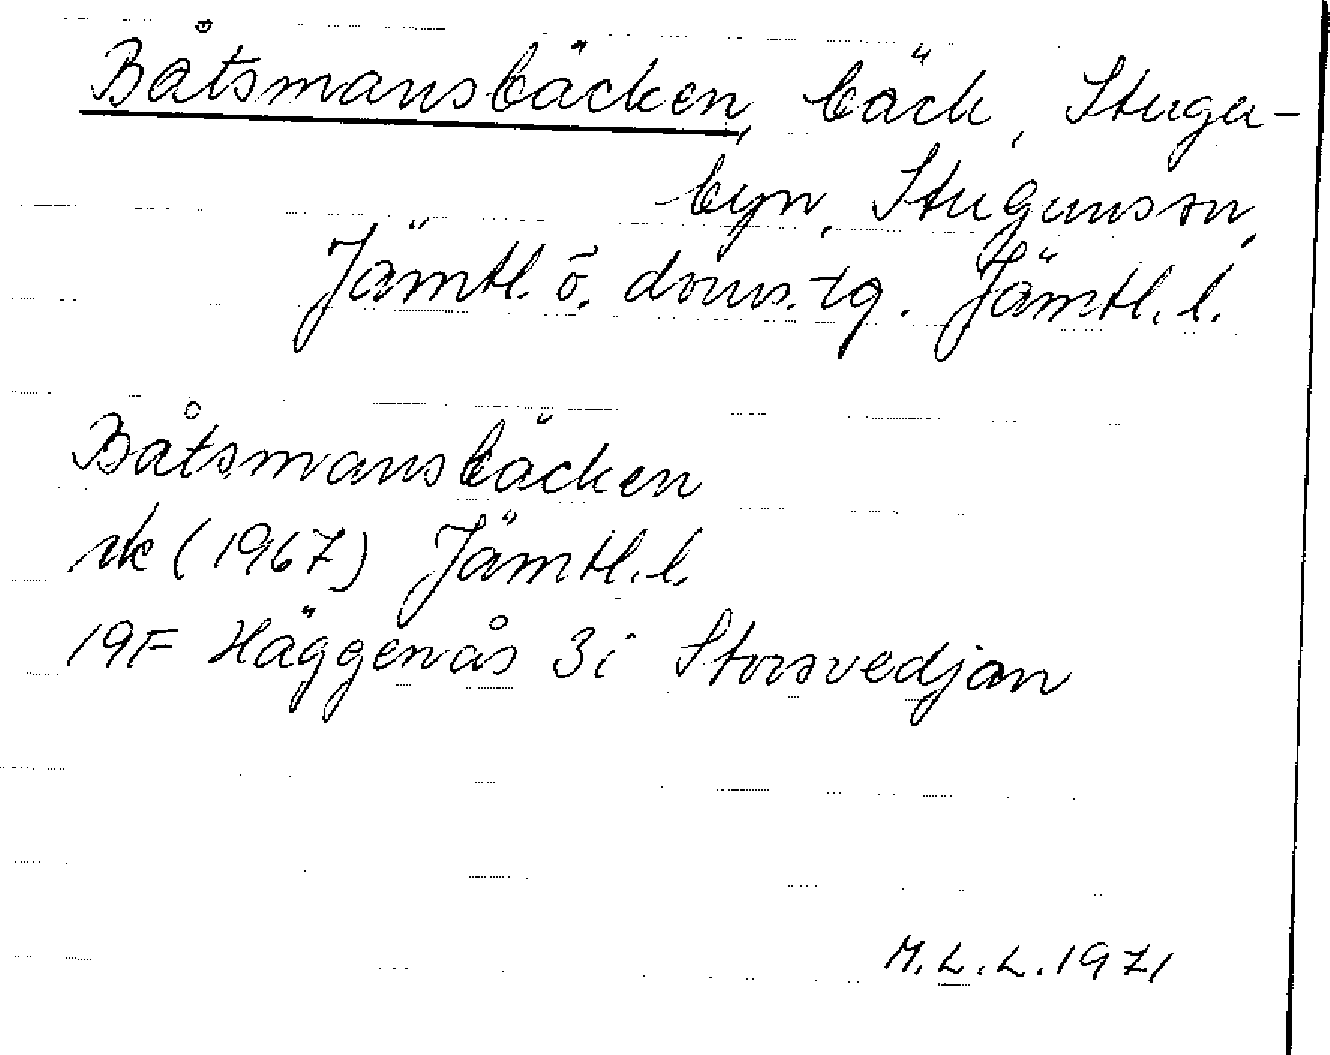 Båtsmansbäcken, bäck, Stugu-
byn, Stuguns sn,
Jämtl. ö. doms.tg. Jämtl. l.
Båtsmansbäcken
rk (1967) Jämtl. l.
19F Häggenås 3i Storsvedjan
M.L.L. 1971